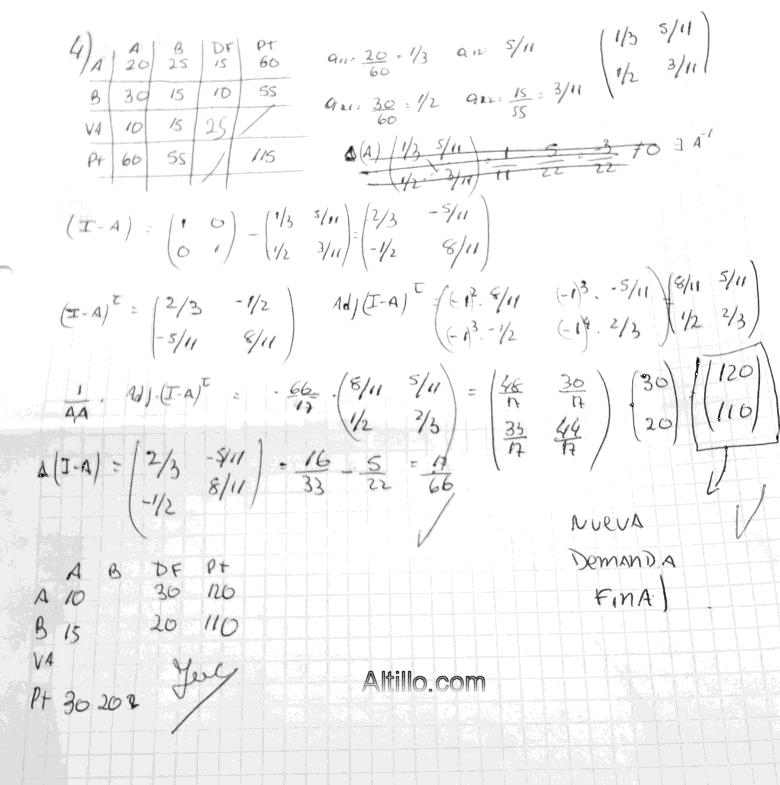 4)
A B DF Pt
A 20 25 15 60
B 30 15 10 55
VA 10 15 25
Pt 60 55 115
a₁₁ = 20/60 = 1/3 a₁₂ = 5/11
a₂₁ = 30/60 = 1/2 a₂₂ = 15/55 = 3/11
(1/3 5/11
1/2 3/11)
Δ(A) (1/3 5/11
1/2 3/11) = 1/11 5/22 = 3/22 ≠0 ∃ A⁻¹
(I-A) = (1 0
0 1) - (1/3 5/11
1/2 3/11) = (2/3 -5/11
-1/2 8/11)
(I-A)ᵗ = (2/3 -1/2
-5/11 8/11)
Adj(I-A)ᵗ = ((-1)². 8/11 (-1)³. -5/11
(-1)³. -1/2 (-1)⁴. 2/3) = (8/11 5/11
1/2 2/3)
Adj.(I-A)ᵗ = 66/17 . (8/11 5/11
1/2 2/3) = (48/17 30/17
33/17 44/17) (30
20) = (120
110)
Δ(I-A) = (2/3 -5/11
-1/2 8/11) = 16/33 - 5/22 = 17/66
NUEVA
DEMANDA
FINAl
A B DF Pt
A 10 30 120
B 15 20 110
VA
Pt 30 20
Altillo.com